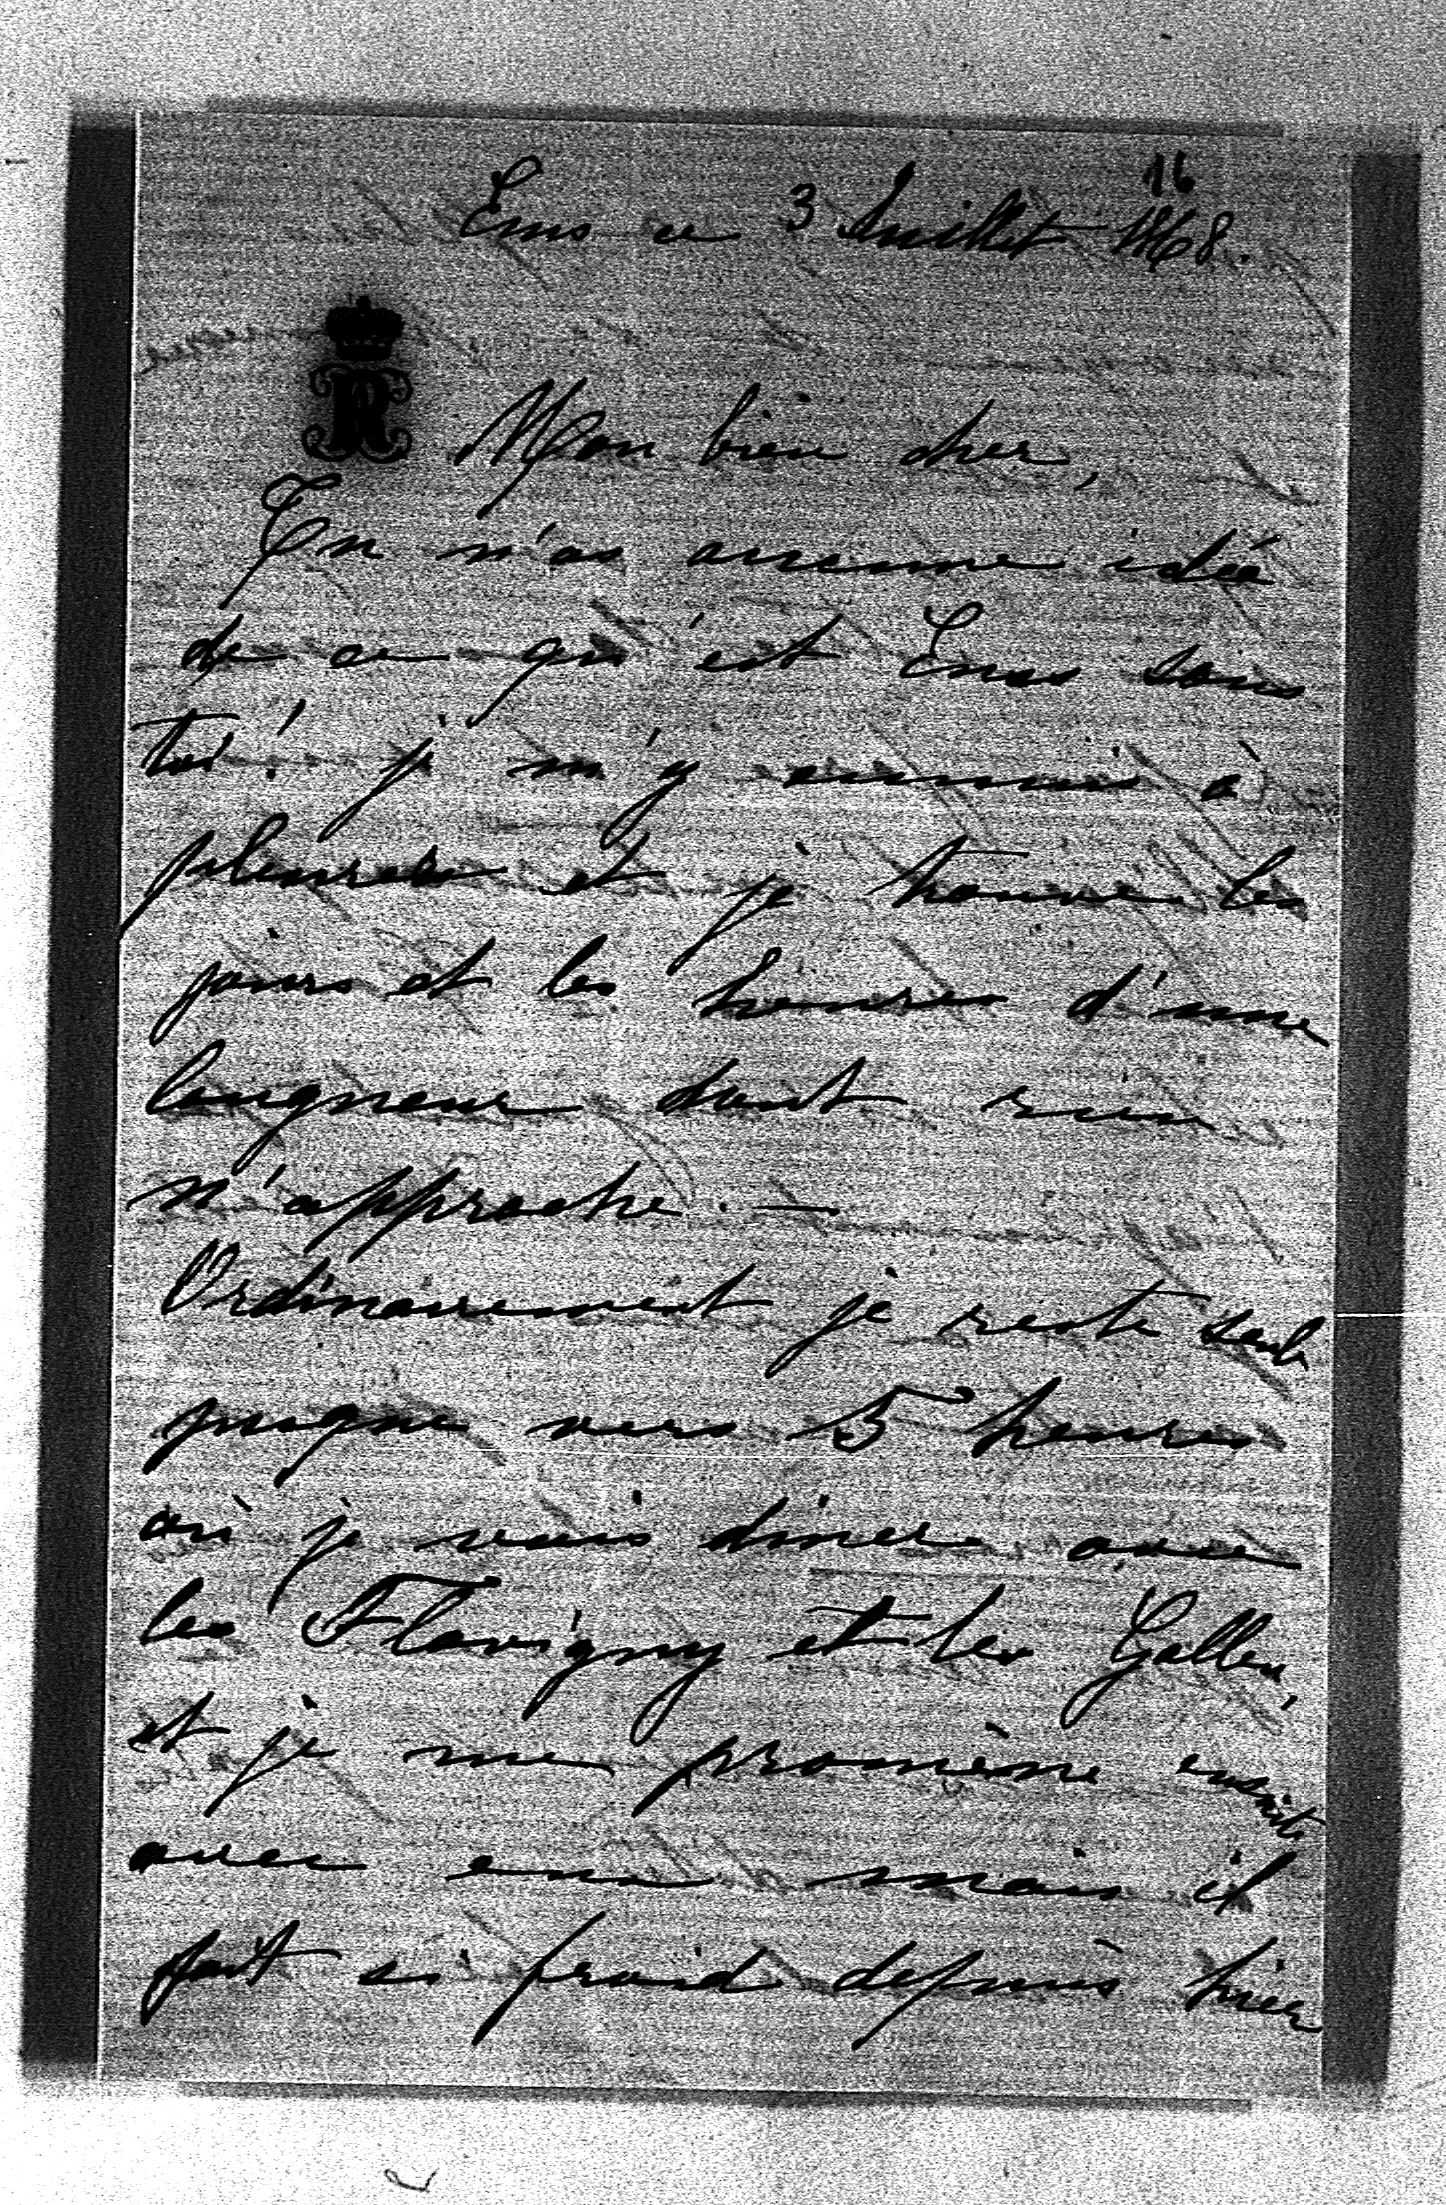 16
Ems ce 3 Juillet 1868.
Mon bien cher,
Tu n'as aucune idée
de ce qu'est Ems sans
toi! je m'y ennuie à
pleurer et je trouve les
jours et les heures d'une
longueur dont rien
n'approche. —
Ordinairement je reste seul
jusque vers 5 heures
où je vais diner avec
les Flavigny et les Gallen,
et je me promène ensuite
avec eux mais il
fait si froid depuis hier